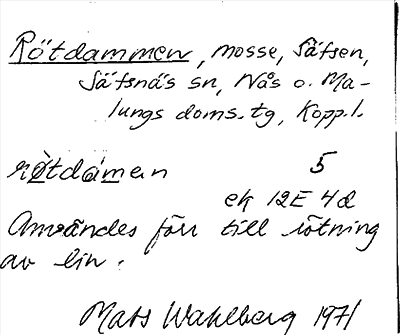 Rötdammen, mosse, Säfsen,
Säfsnäs sn, Nås o. Ma-
lungs doms.tg, Kopp.l.
rø̀tdámen 5
ek 12E 4d
Användes förr till rötning
av lin.
Mats Wahlberg 1971